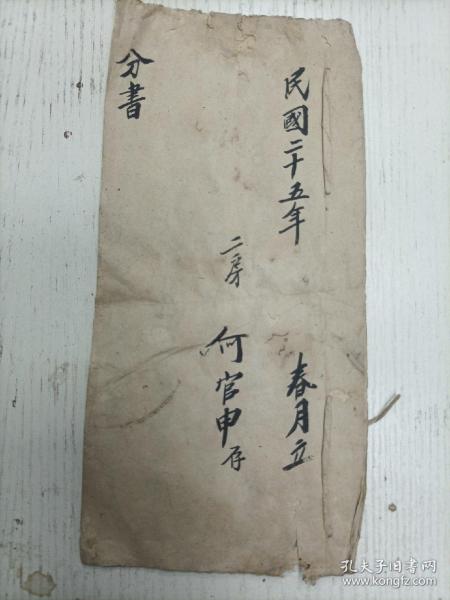 民國二十五年 春月立
二房 何官申存
分書
孔夫子旧书网
www.kongfz.com